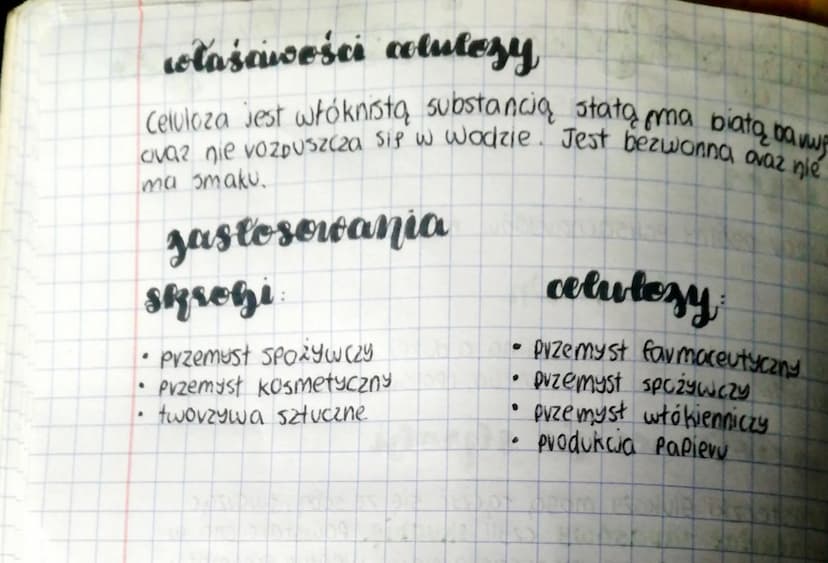 właściwości celulozy
Celuloza jest włóknistą substancją stałą, ma białą barwę
oraz nie rozpuszcza się w wodzie. Jest bezwonna oraz nie
ma smaku.
zastosowania
skrobi:
• przemysł spożywczy
• przemysł kosmetyczny
• tworzywa sztuczne
celulozy:
• przemysł farmaceutyczny
• przemysł spożywczy
• przemysł włókienniczy
• produkcja papieru